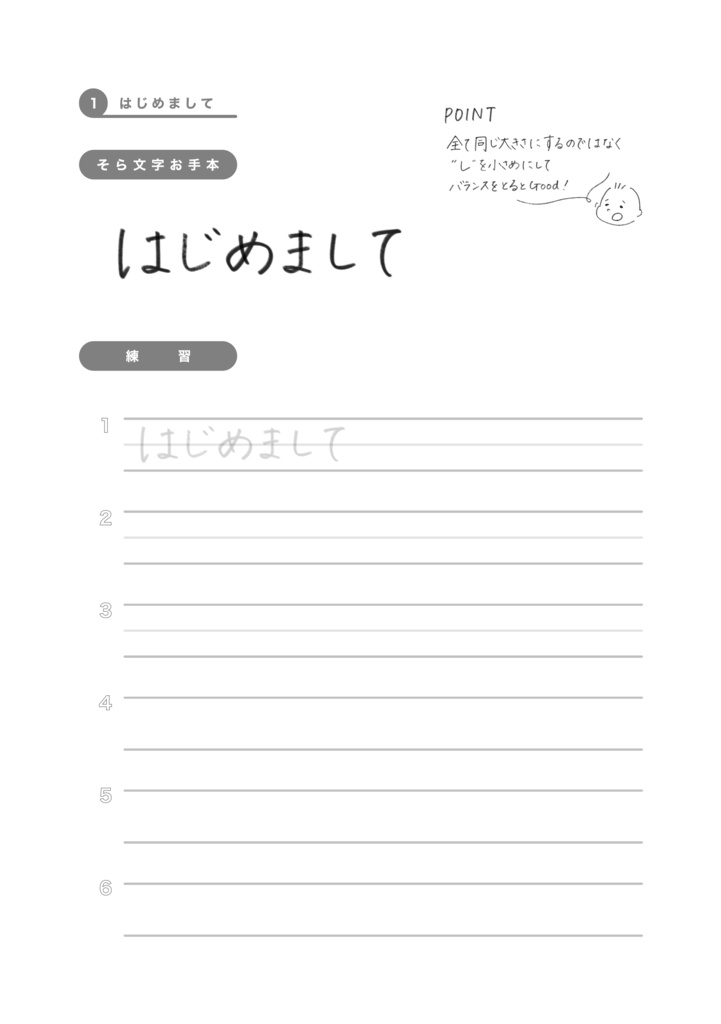 1 はじめまして
そら文字お手本
POINT
全て同じ大きさにするのではなく
"し"を小さめにして
バランスをとるとGood!
はじめまして
練習
1 はじめまして
2
3
4
5
6